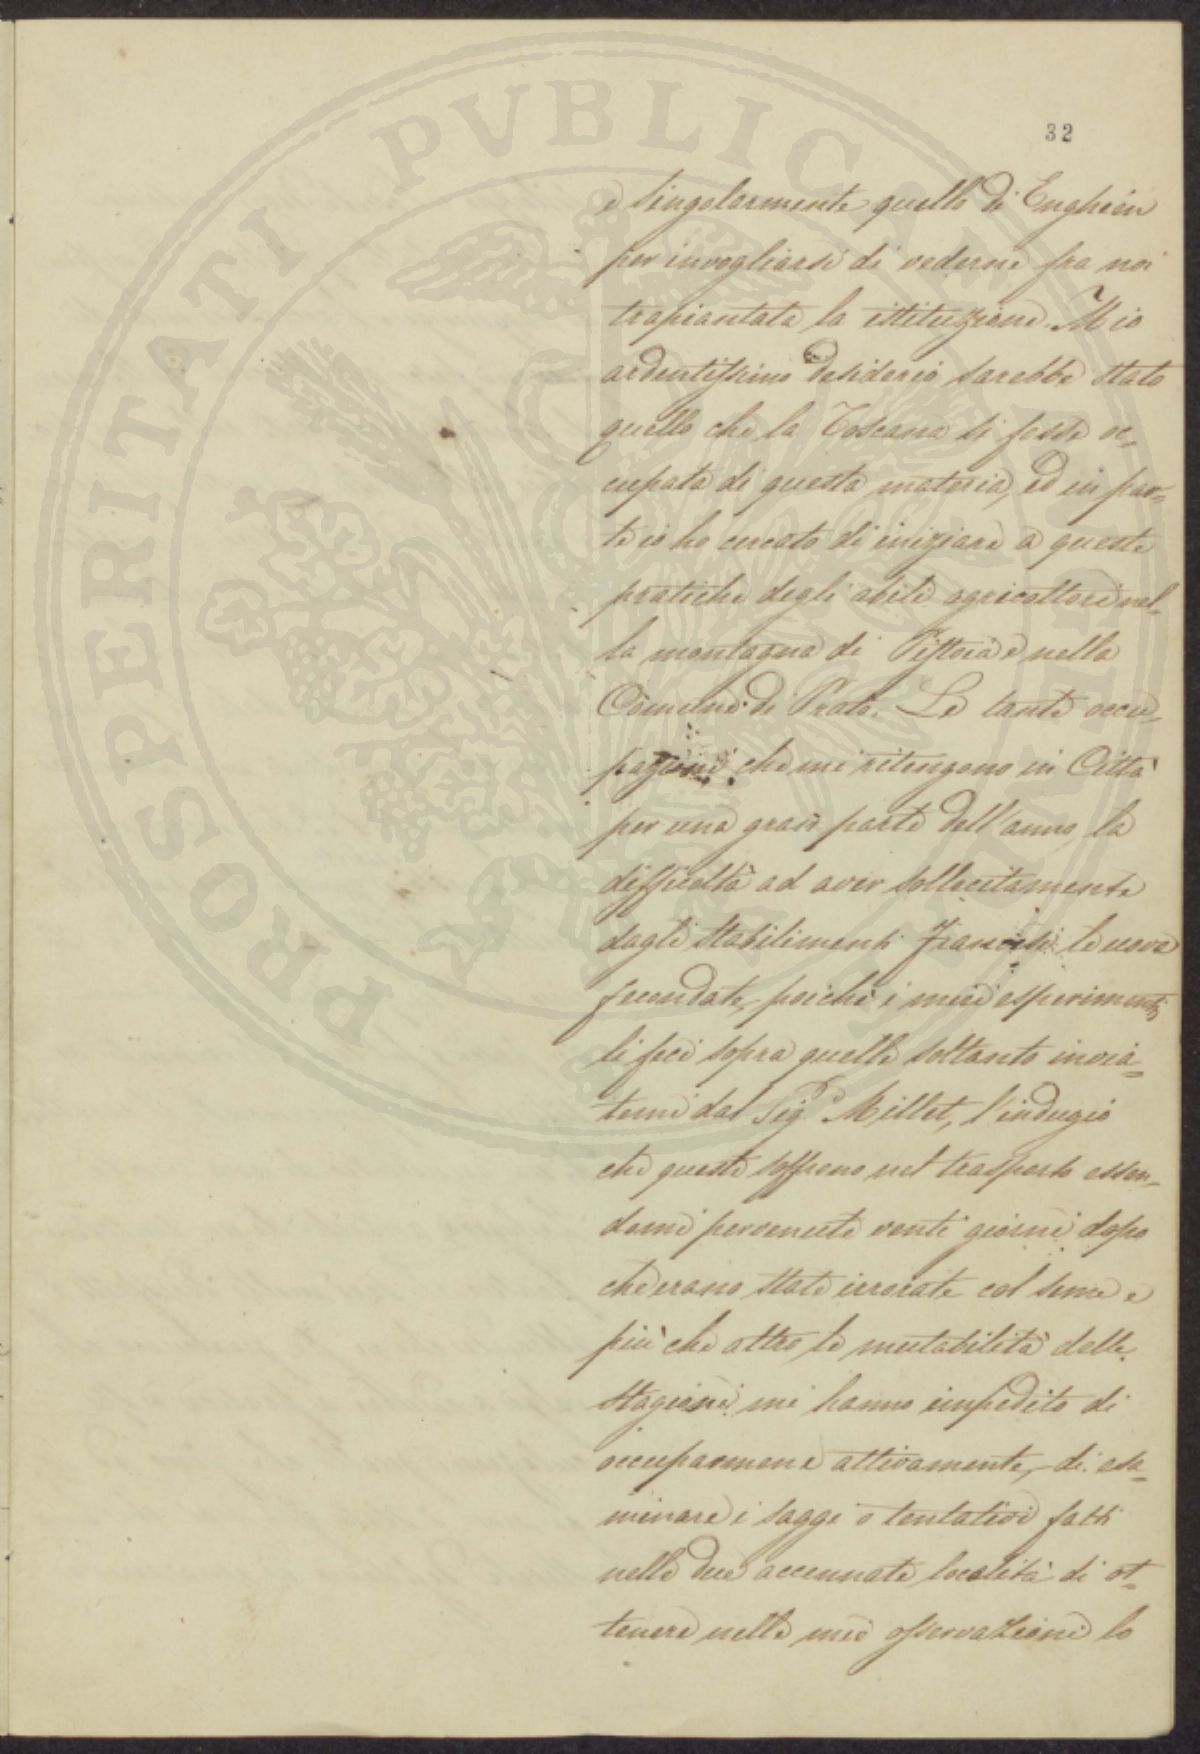 32
e singolarmente quello di Enghien
per invogliarsi di vederne fra noi
trapiantata la istituzione. Mio
ardentissimo desiderio sarebbe stato
quello che la Toscana si fosse oc-
cupata di questa materia, ed in par-
te io ho cercato di iniziare a queste
pratiche degli abili agricoltori nel-
la montagna di Pistoia e nella
Comune di Prato. Le tante occu-
pazioni che mi ritengono in Città
per una gran parte dell'anno, la
difficoltà ad aver sollecitamente
dagli stabilimenti Francesi le uova
fecondate, poichè i miei esperimenti
li feci sopra quelle soltanto invia-
temi dal Sig.r Millet, l'indugio
che queste soffrono nel trasporto essen-
domi pervenute venti giorni dopo
che erano state irrorate col seme e
più che altro la mutabilità delle
stagioni mi hanno impedito di
occuparmene attivamente, di esa-
minare i saggi o tentativi fatti
nelle due accennate località di ot-
tenere nelle mie osservazioni lo
PROSPERITATI PVBLICAE